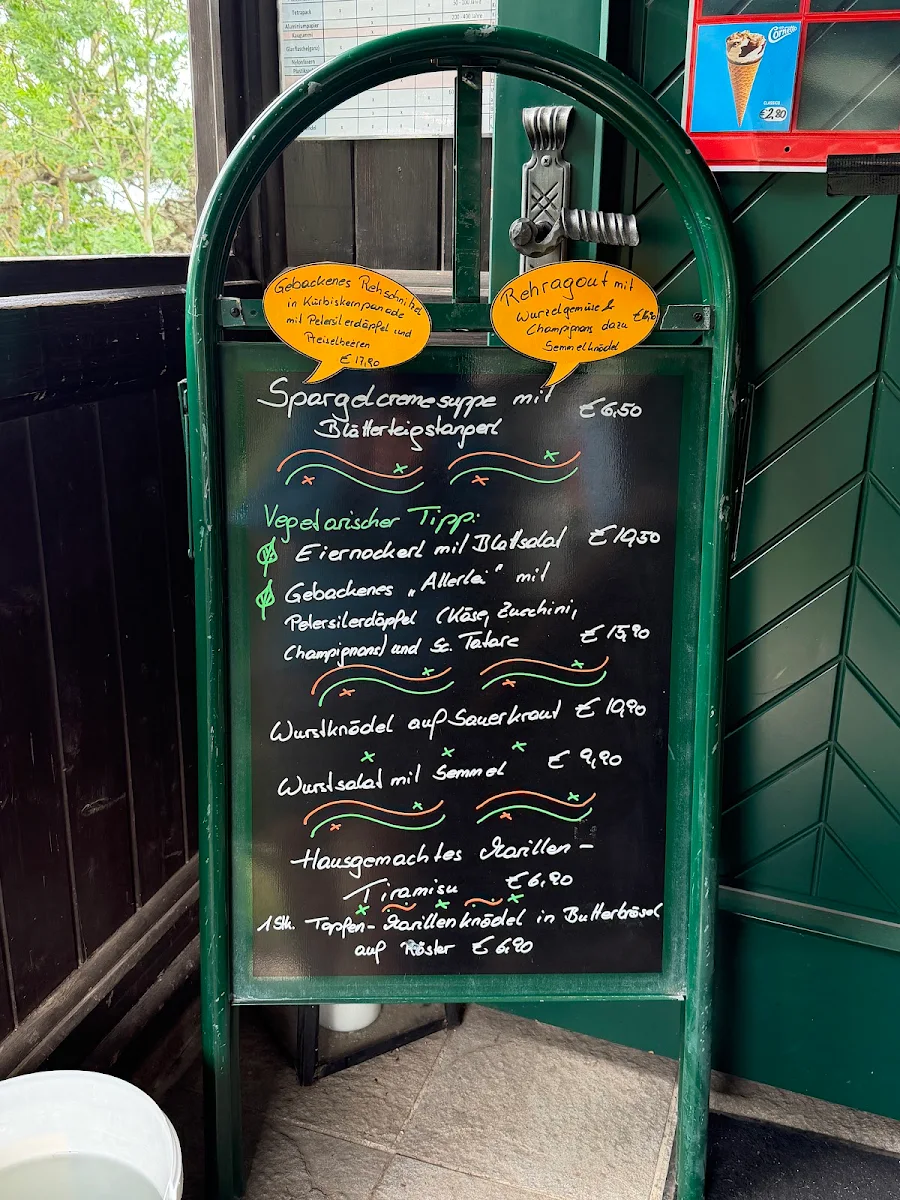 Tetrapack
Aluminiumpapier
Kaugummi
Glasflasche(ganz)
Nylonfasern
Cornetto
CLASSICO
€2,80
Gebackenes Rehschnitzel
in Kürbiskernpanade
mit Petersilerdäpfel und
Preiselbeeren
€ 17,90
Rehragout mit
Wurzelgemüse &
Champignons dazu
Semmelknödel
Spargelcremesuppe mit € 6,50
Blätterteigstangerl
Vegetarischer Tipp:
Eiernockerl mit Blattsalat € 10,50
Gebackenes „Allerlei" mit
Petersilerdäpfel (Käse, Zucchini,
Champignons) und Sc. Tatare € 15,90
Wurstknödel auf Sauerkraut € 10,90
Wurstsalat mit Semmel € 9,90
Hausgemachtes Marillen-
Tiramisu € 6,90
1 Stk. Topfen-Marillenknödel in Butterbrösel
auf Röster € 6,90